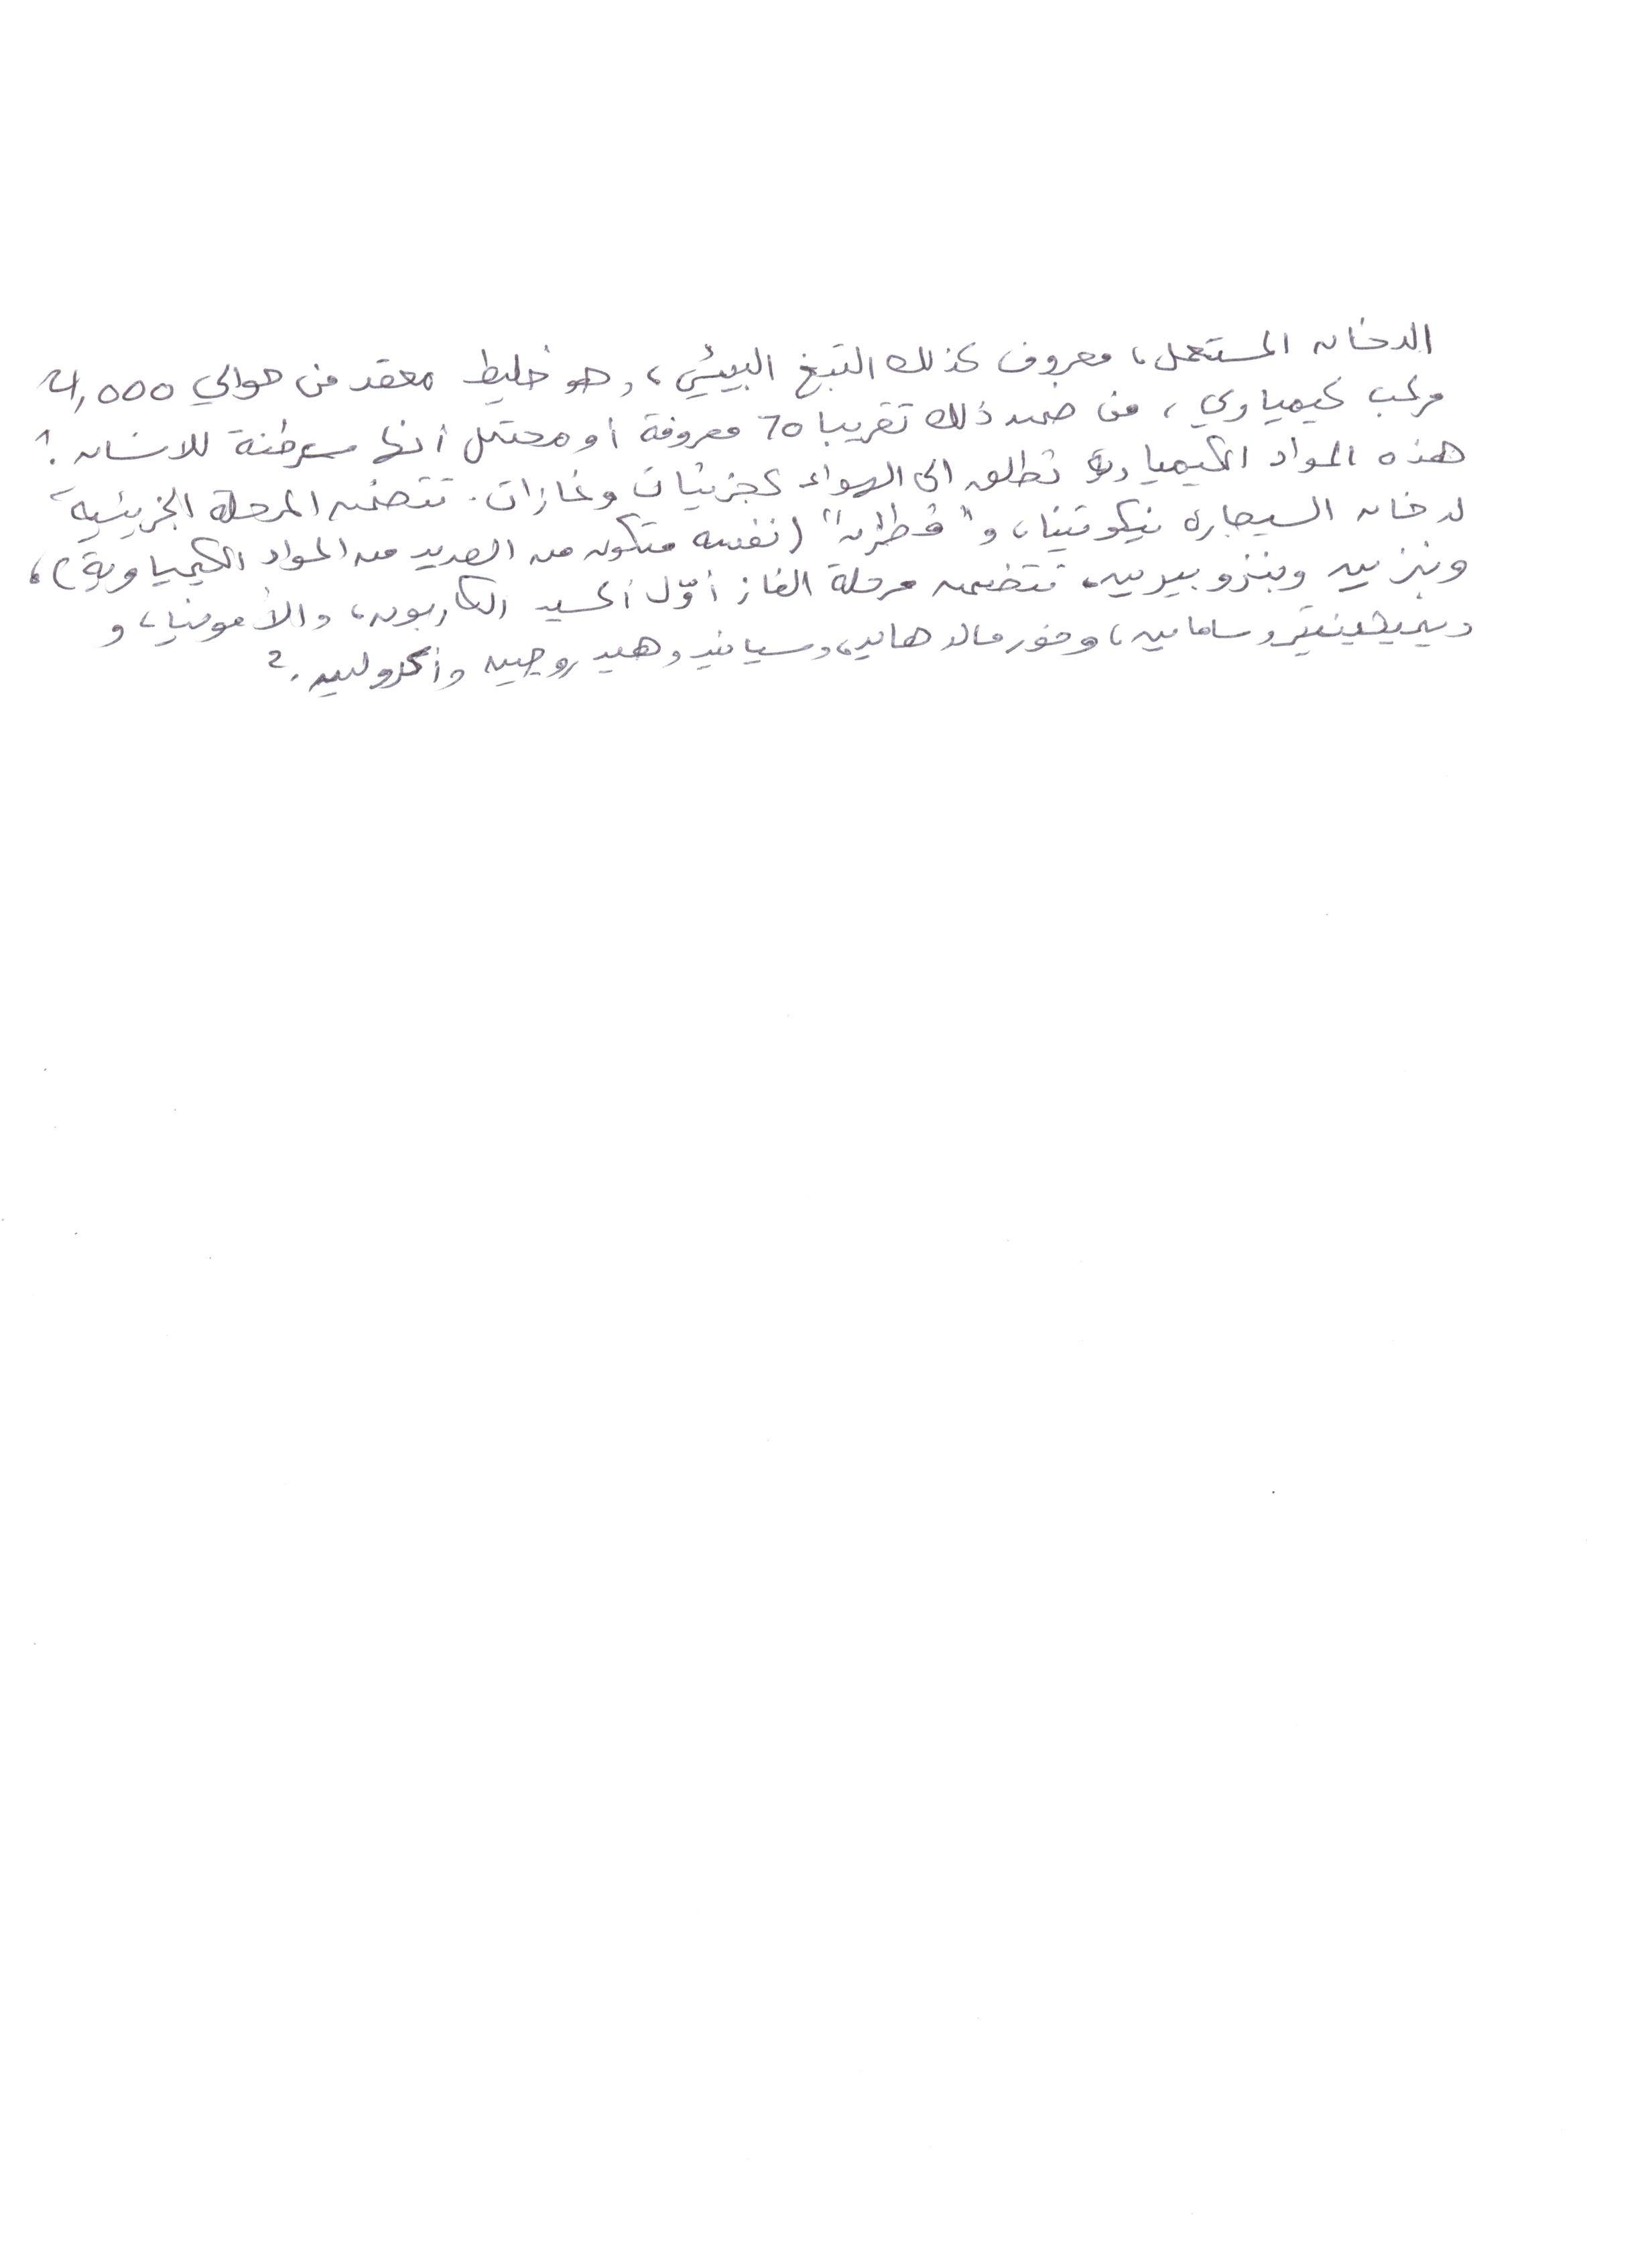 الدخان المستعمل، معروف كذلك التبغ البيئي، وهو خليط معقد من حوالي 4,000
مركب كيمياوي، من ضمن ذلك تقريبا 70 معروفة أو محتمل أنها مسرطنة للانسان.¹
هذه المواد الكيمياوية تطلق الى الهواء كجزيئات وغازات. تتضمن المرحلة الجزيئية
لدخان السيجارة نيكوتينا، و"قطران" (نفسه متكون من العديد من المواد الكيمياوية)،
وبنزين وبنزوبيرين. تتضمن مرحلة الغاز أوّل أكسيد الكاربون، والأمونيا، و
ديميثيلنيتروسامامين، وفورمالدهايد، وسيانيد وهيدروجين وأكرولين.²